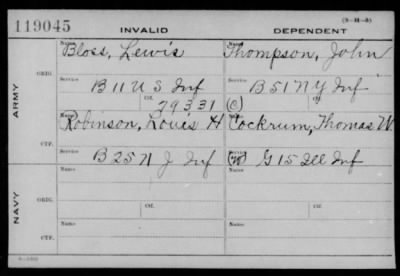 119045
INVALID
DEPENDENT
(3-M-5)
Name
Name
Bloss, Lewis
Thompson, John
ARMY
ORIG.
Service
Service
B 11 U S Inf
B 51 N Y Inf
Ctf.
Ctf.
79331
(C)
Name
Name
Robinson, Louis H
Cockrum, Thomas W.
CTF.
Service
Service
B 25 N J Inf
(W) G 15 Ill Inf
NAVY
Name
Name
ORIG.
Ctf.
Ctf.
Name
Name
CTF.